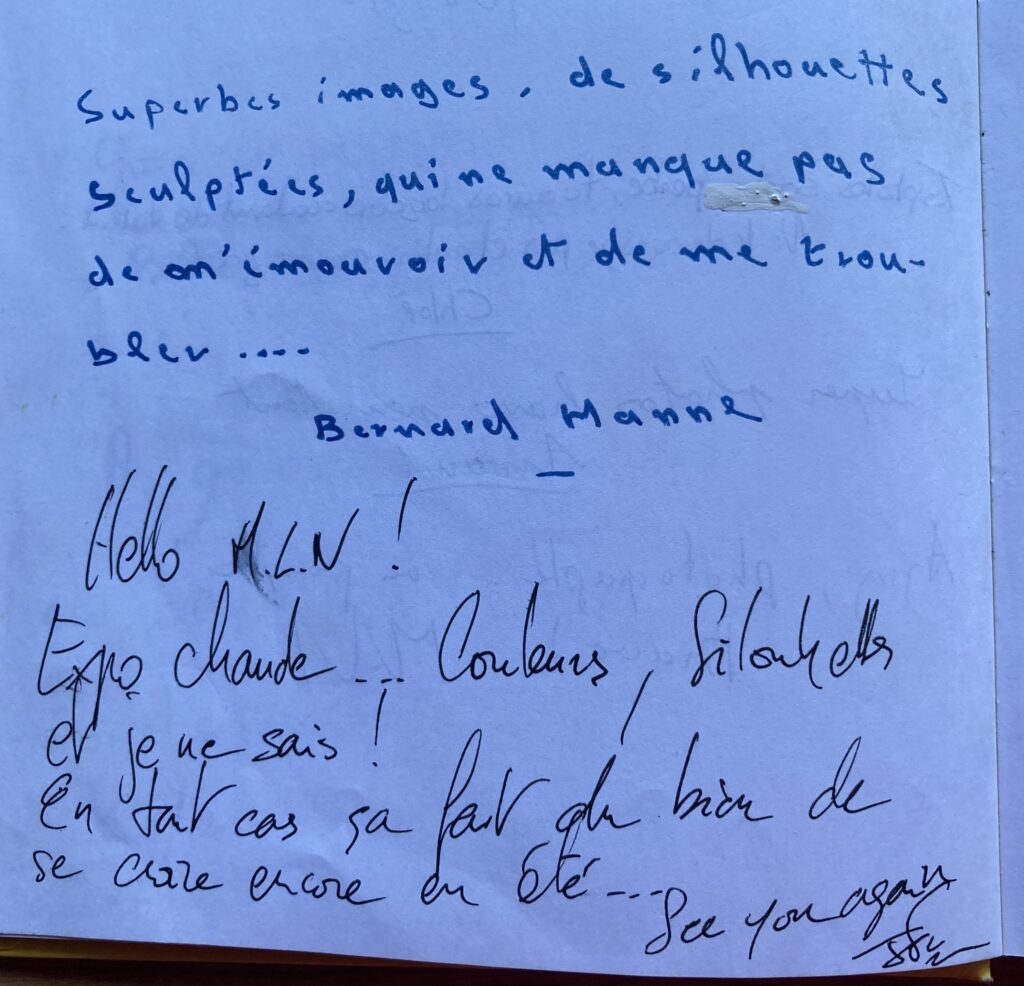 Superbes images, de silhouettes
sculptées, qui ne manque pas
de m'émouvoir et de me trou-
bler ....
Bernard Manne
Hello M.L.N !
Expo chaude ... Couleurs, Silouhettes
et je ne sais !
En tout cas ça fait du bien de
se croire encore en été ...
See you again